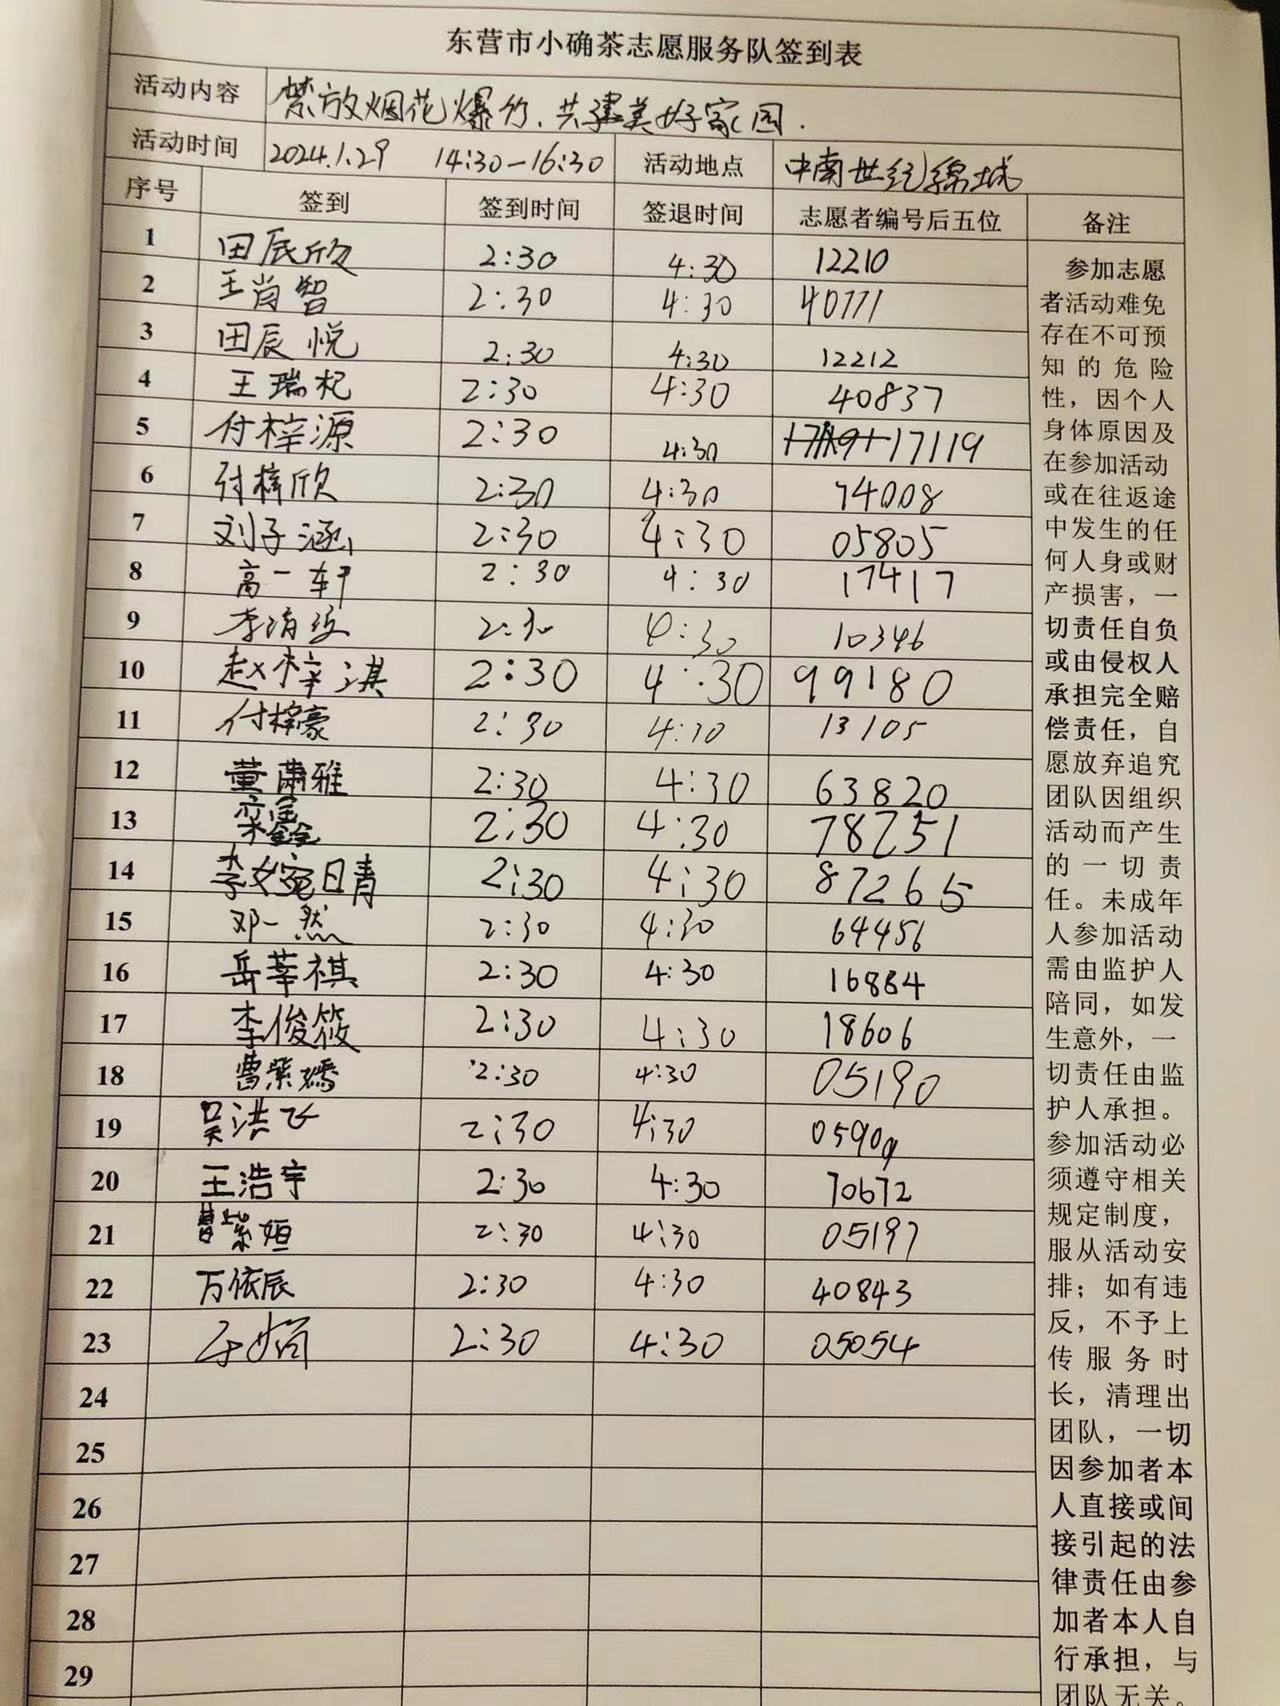 东营市小确茶志愿服务队签到表
活动内容 禁放烟花爆竹、共建美好家园.
活动时间 2024.1.29 14:30—16:30 活动地点 中南世纪锦城
序号 签到 签到时间 签退时间 志愿者编号后五位 备注
1 田辰欣 2:30 4:30 12210
2 王肖智 2:30 4:30 40771
3 田辰悦 2:30 4:30 12212
4 王瑞杞 2:30 4:30 40837
5 付梓源 2:30 4:30 17119
6 付梓欣 2:30 4:30 74008
7 刘子涵 2:30 4:30 05805
8 高一轩 2:30 4:30 17417
9 2:30 4:30 10346
10 赵梓淇 2:30 4:30 99180
11 付梓豪 2:30 4:30 13105
12 董肃雅 2:30 4:30 63820
13 栾鑫 2:30 4:30 78251
14 李婉晴 2:30 4:30 87265
15 邓一然 2:30 4:30 64456
16 岳莘祺 2:30 4:30 16884
17 李俊筱 2:30 4:30 18606
18 曹紫嫣 2:30 4:30 05190
19 吴洪飞 2:30 4:30
20 王浩宇 2:30 4:30 70672
21 曹紫姮 2:30 4:30 05197
22 万依辰 2:30 4:30 40843
23 于娟 2:30 4:30 05054
24
25
26
27
28
29
参加志愿
者活动难免
存在不可预
知的危险
性，因个人
身体原因及
在参加活动
或在往返途
中发生的任
何人身或财
产损害，一
切责任自负
或由侵权人
承担完全赔
偿责任，自
愿放弃追究
团队因组织
活动而产生
的一切责
任。未成年
人参加活动
需由监护人
陪同，如发
生意外，一
切责任由监
护人承担。
参加活动必
须遵守相关
规定制度，
服从活动安
排；如有违
反，不予上
传服务时
长，清理出
团队，一切
因参加者本
人直接或间
接引起的法
律责任由参
加者本人自
行承担，与
团队无关。